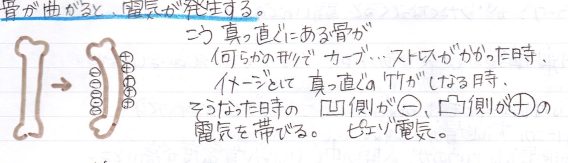 骨が曲がると、電気が発生する。
こう真っ直ぐにある骨が
何らかの形りでカーブ…ストレスがかかった時、
イメージとして真っ直ぐの竹がしなる時、
そうなった時の凹側が⊖、凸側が⊕の
電気を帯びる。 ピエゾ電気。